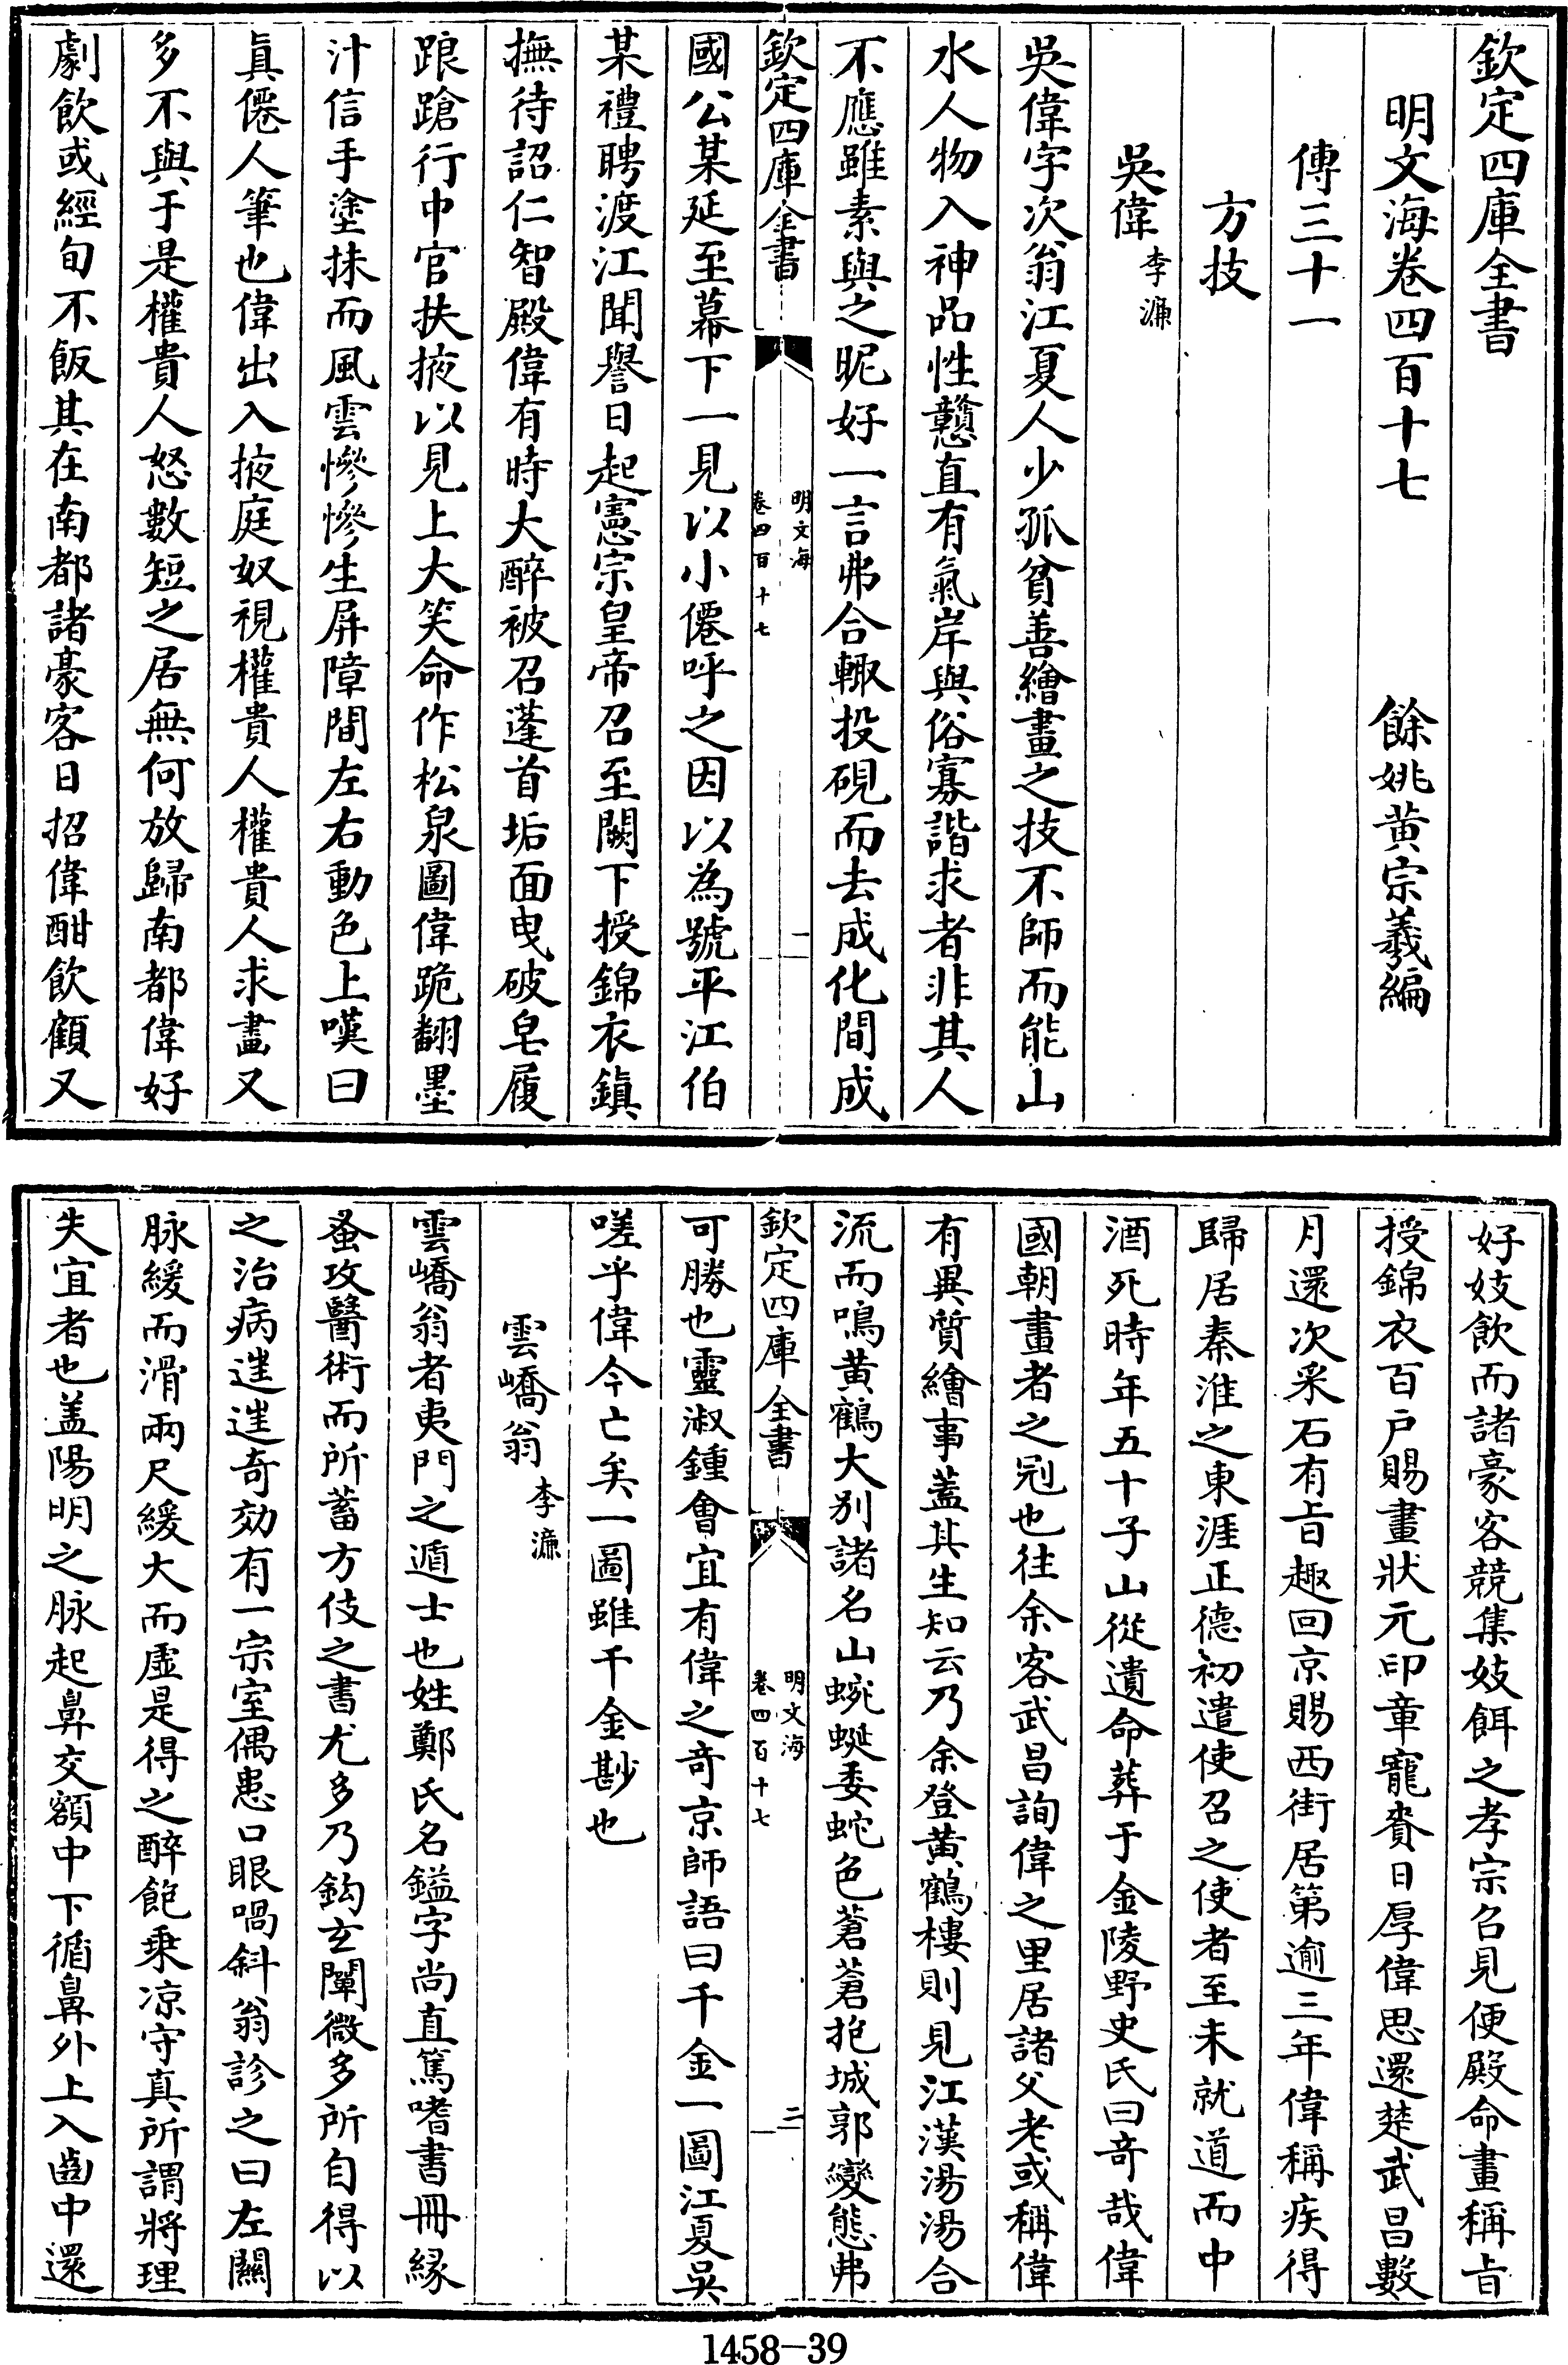 欽定四庫全書
明文海卷四百十七　餘姚黄宗羲編
傳三十一
方技
吳偉李濂
吳偉字次翁江夏人少孤貧善繪畫之技不師而能山
水人物入神品性戇直有氣岸與俗寡諧求者非其人
不應雖素與之昵好一言弗合輙投硯而去成化間成
欽定四庫全書
明文海
卷四百十七
一
國公某延至幕下一見以小僊呼之因以為號平江伯
某禮聘渡江聞譽日起憲宗皇帝召至闕下授錦衣鎮
撫待詔仁智殿偉有時大醉被召蓬首垢面曳破皂履
踉蹌行中官扶掖以見上大笑命作松泉圖偉跪翻墨
汁信手塗抹而風雲慘慘生屏障間左右動色上嘆曰
眞僊人筆也偉出入掖庭奴視權貴人權貴人求畫又
多不與于是權貴人怒數短之居無何放歸南都偉好
劇飲或經旬不飯其在南都諸豪客日招偉酣飲顧又
好妓飲而諸豪客競集妓餌之孝宗召見便殿命畫稱旨
授錦衣百戶賜畫狀元印章寵賚日厚偉思還楚武昌數
月還次采石有旨趣回京賜西街居第逾三年偉稱疾得
歸居秦淮之東涯正德初遣使召之使者至未就道而中
酒死時年五十子山從遺命葬于金陵野史氏曰奇哉偉
國朝畫者之冠也往余客武昌詢偉之里居諸父老或稱偉
有異質繪事蓋其生知云乃余登黄鶴樓則見江漢湯湯合
流而鳴黄鶴大别諸名山蜿蜒委蛇色蒼蒼抱城郭變態弗
欽定四庫全書
明文海
卷四百十七
二
可勝也靈淑鍾會宜有偉之奇京師語曰千金一圖江夏吳
嗟乎偉今亡矣一圖雖千金尠也
雲嶠翁李濂
雲嶠翁者夷門之遁士也姓鄭氏名鎰字尚直篤嗜書冊緣
蚤攻醫術而所蓄方伎之書尤多乃鈎玄闡微多所自得以
之治病進進奇効有一宗室偶患口眼喎斜翁診之曰左關
脉緩而滑兩尺緩大而虛是得之醉飽乗凉守真所謂將理
失宜者也盖陽明之脉起鼻交額中下循鼻外上入齒中還
1458-39